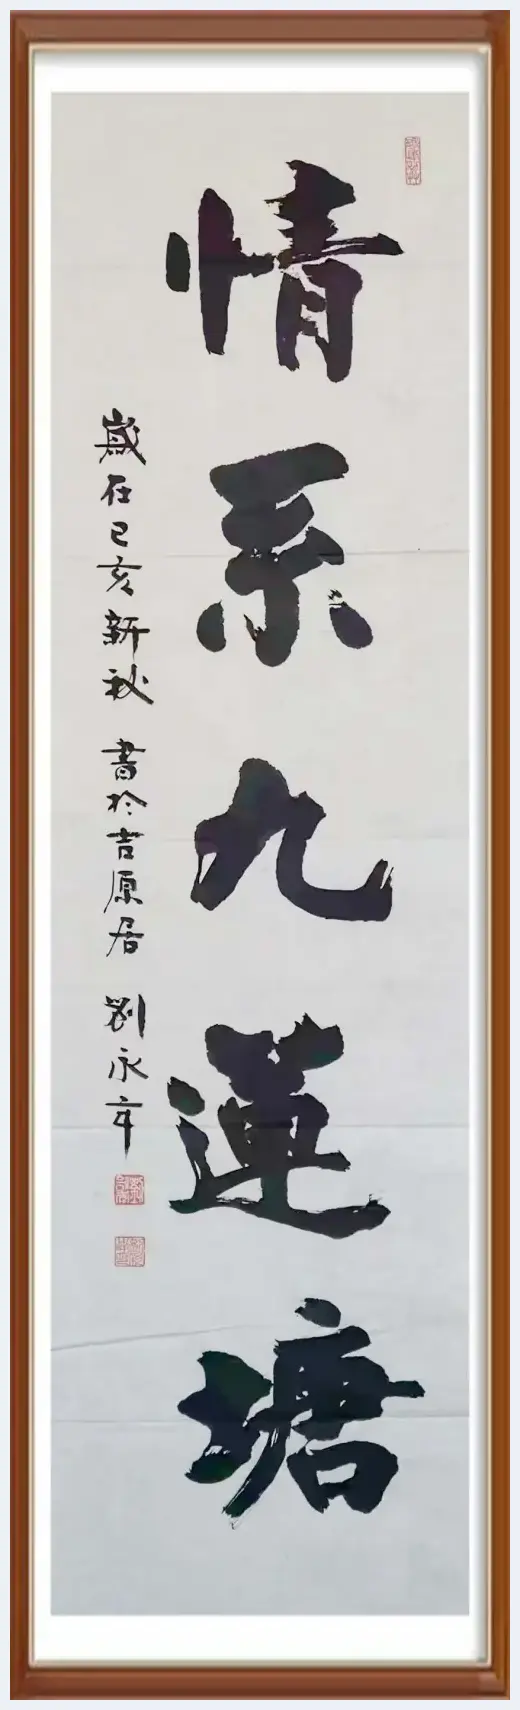 情系九莲塘
歲在己亥新秋 書於吉原居 劉永年